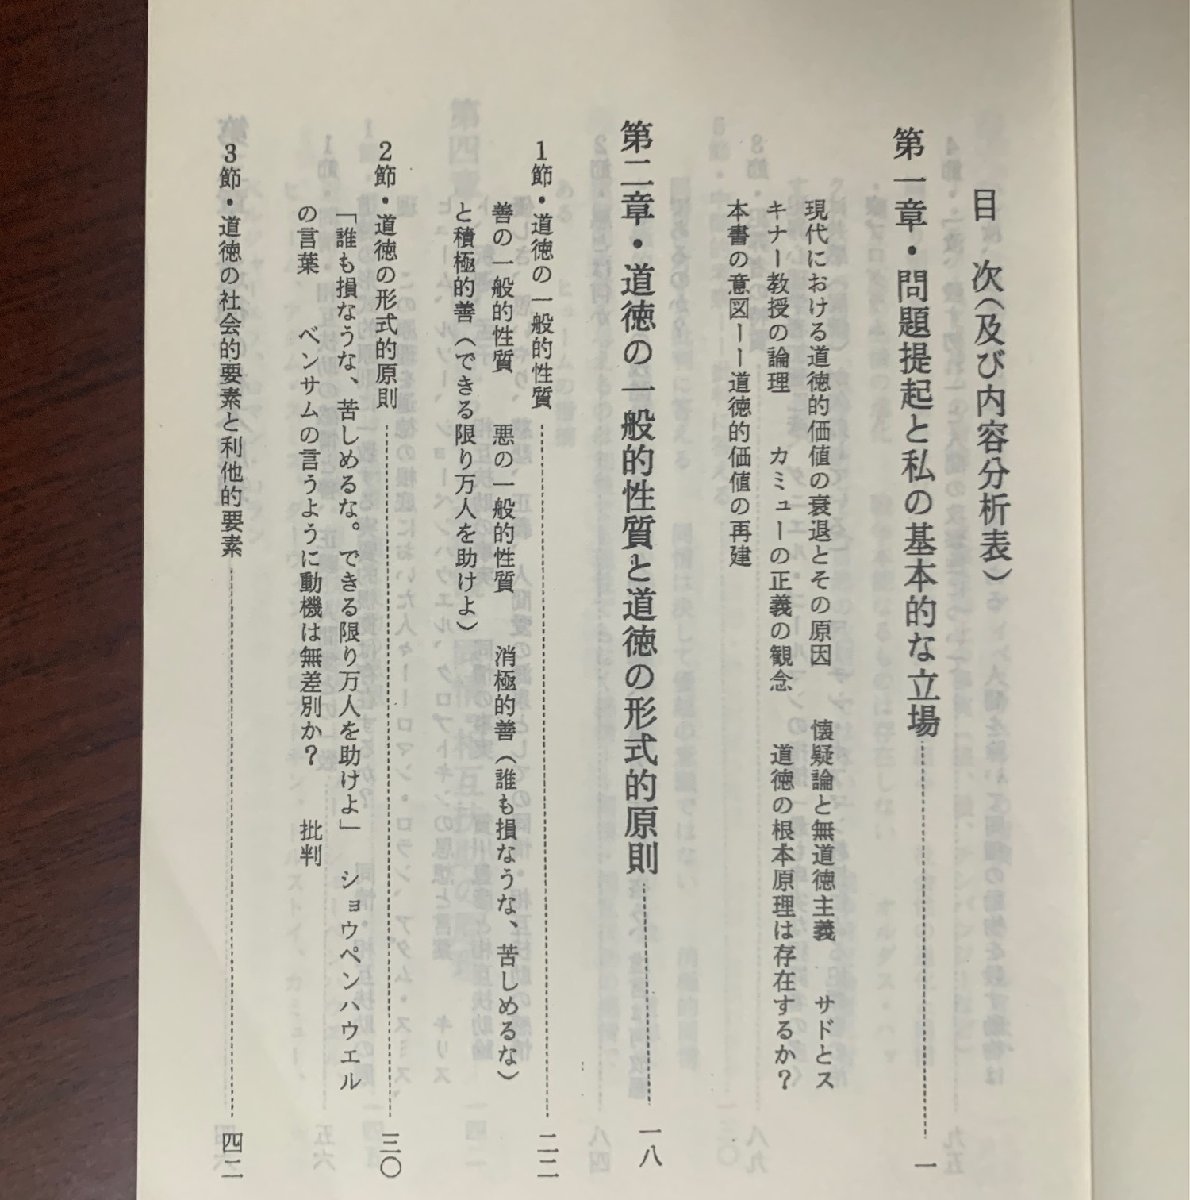 目 次(及び内容分析表)
第一章・問題提起と私の基本的な立場……一
現代における道徳的価値の衰退とその原因 懐疑論と無道徳主義 サドとス
キナー教授の論理 カミューの正義の観念 道徳の根本原理は存在するか?
本書の意図ーー道徳的価値の再建
第二章・道徳の一般的性質と道徳の形式的原則……一八
1節・道徳の一般的性質……二二
善の一般的性質 悪の一般的性質 消極的善(誰も損なうな、苦しめるな)
と積極的善(できる限り万人を助けよ)
2節・道徳の形式的原則……三〇
「誰も損なうな、苦しめるな。できる限り万人を助けよ」 ショウペンハウエル
の言葉 ベンサムの言うように動機は無差別か? 批判
3節・道徳の社会的要素と利他的要素……四二